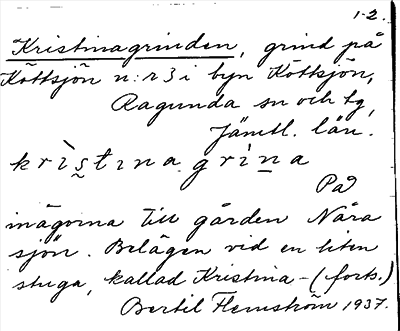 1-2.
Kristinagrinden, grind på
Köttsjön n:r 3 i byn Köttsjön,
Ragunda sn och tg,
Jämtl. län.
krìs̰tɪna grìn̠a
På
inägorna till gården Nära
sjön. Belägen vid en liten
stuga, kallad Kristina- (forts.)
Bertil Flemström 1937.